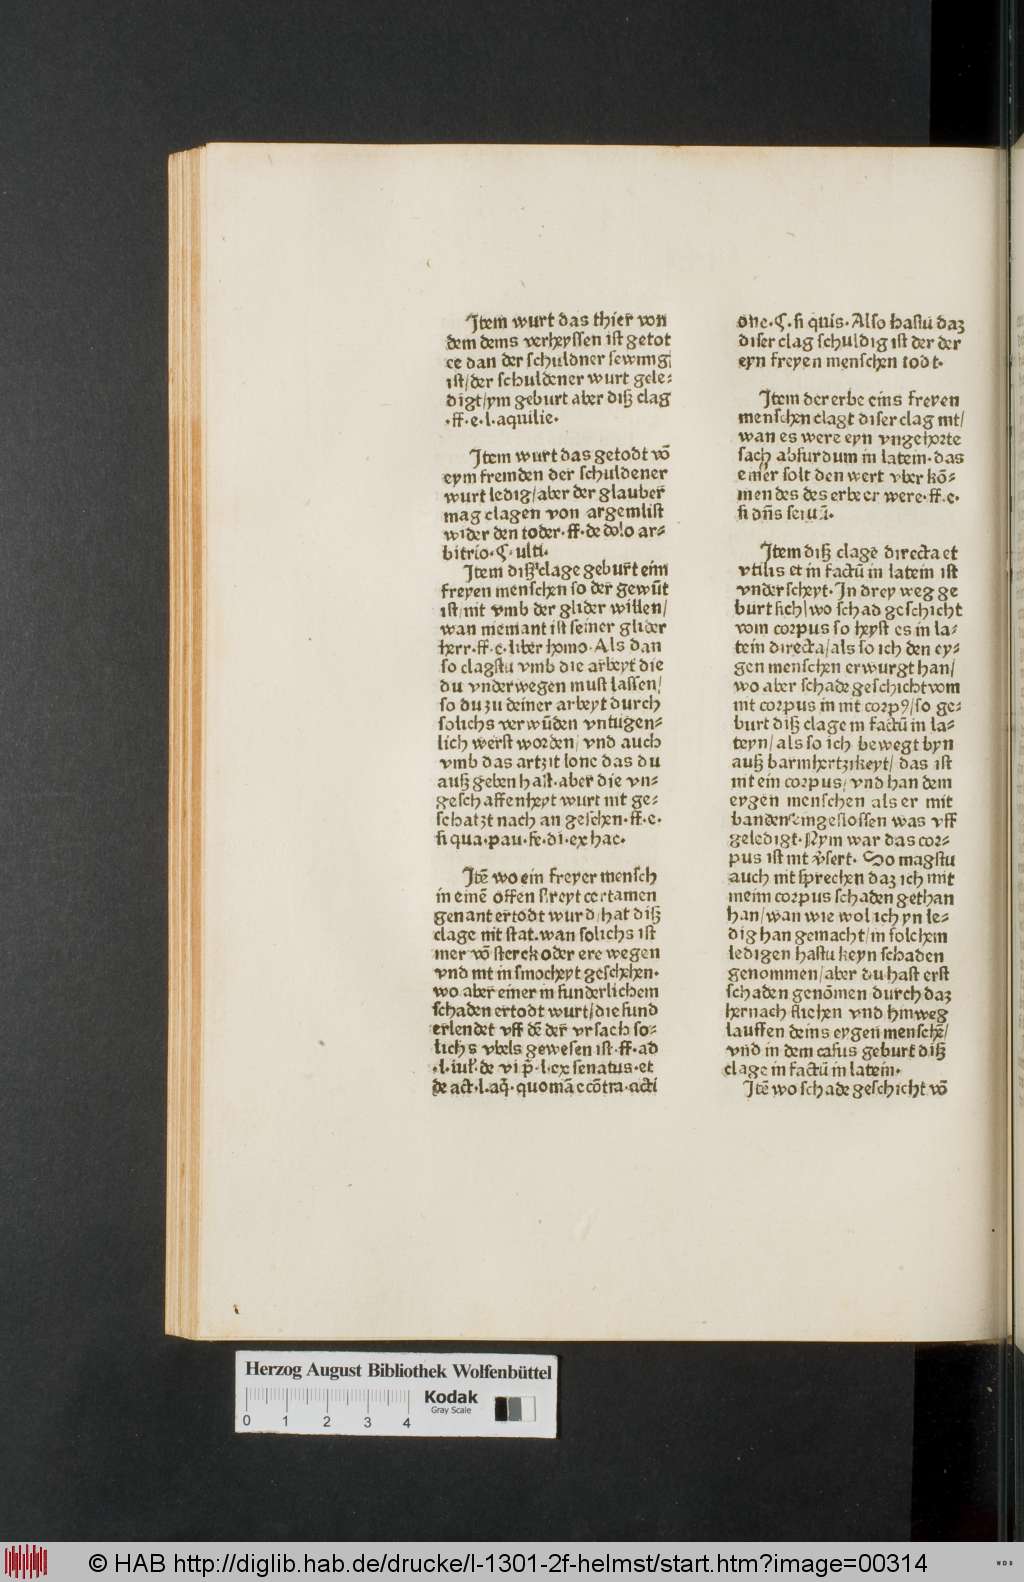 Item wurt das thier von
dem dems verheyssen ist getot
ee dan der schuldner sewmig
ist/der schuldener wurt gele⸗
digt/ym geburt aber diß clag
.ff.e.l.aquilie.
Item wurt das getodt vō
eym fremden der schuldener
wurt ledig/aber der glauber
mag clagen von argemlist
wider den toder.ff.de dolo ar⸗
bitrio.C. ulti.
Item diß clage geburt eim
freyen menschen so der gewūt
ist/nit vmb der glider willen/
wan niemant ist seiner glider
herr.ff.e.liber homo.Als dan
so clagstu vmb die arbeyt die
du vnderwegen must lassen/
so du zu deiner arbeyt durch
solichs verwūden vntugen⸗
lich werst worden/ vnd auch
vmb das artzit lone das du
auß geben hast.aber die vn⸗
geschaffenheyt wurt nit ge⸗
schatzt nach an gesehen.ff.e.
si qua.pau.fe.di.ex hac.
Itē wo ein freyer mensch
in einē offen streyt certamen
genant ertodt wurd/hat diß
clage nit stat.wan solichs ist
mer vō sterck oder ere wegen
vnd nit in smocheyt geschehen.
wo aber einer in sunderlichem
schaden ertodt wurt/die sund
erlendet vff dē der vrsach so⸗
lichs vbels gewesen ist.ff.ad
.l.iul.de vi p̄.l.ex senatus.et
de act.l.aq̄.quoniā e cōtra.acti
one.C.si quis.Also hastu daz
diser clag schuldig ist der der
eyn freyen menschen todt.
Item der erbe eins freyen
menschen clagt diser clag nit/
wan es were eyn vngehorte
sach absurdum in latein.das
einer solt den wert vber kō⸗
men des des erbe er were.ff.e.
si dn̄s seruū.
Item diß clage directa et
vtilis et in factū in latein ist
vnderscheyt.In drey weg ge
burt sich/wo schad geschicht
vom corpus so heyst es in la⸗
tein directa/als so ich den ey⸗
gen menschen erwurgt han/
wo aber schade geschicht vom
nit corpus in nit corpꝰ/so ge⸗
burt diß clage in factū in la⸗
teyn/als so ich bewegt byn
auß barmhertzikeyt/ das ist
nit ein corpus/vnd han dem
eygen menschen als er mit
banden eingeslossen was vff
geledigt.Nym war das cor⸗
pus ist nit v̄sert. So magstu
auch nit sprechen daz ich mit
meim corpus schaden gethan
han/wan wie wol ich yn le⸗
dig han gemacht/in solchem
ledigen hastu keyn schaden
genommen/aber du hast erst
schaden genōmen durch daz
hernach flichen vnd hinweg
lauffen deins eygen menschē/
vnd in dem casus geburt diß
clage in factū in latein.
Itē wo schade geschicht vō
Herzog August Bibliothek Wolfenbüttel
Kodak
Gray Scale
0 1 2 3 4
© HAB http://diglib.hab.de/drucke/l-1301-2f-helmst/start.htm?image=00314